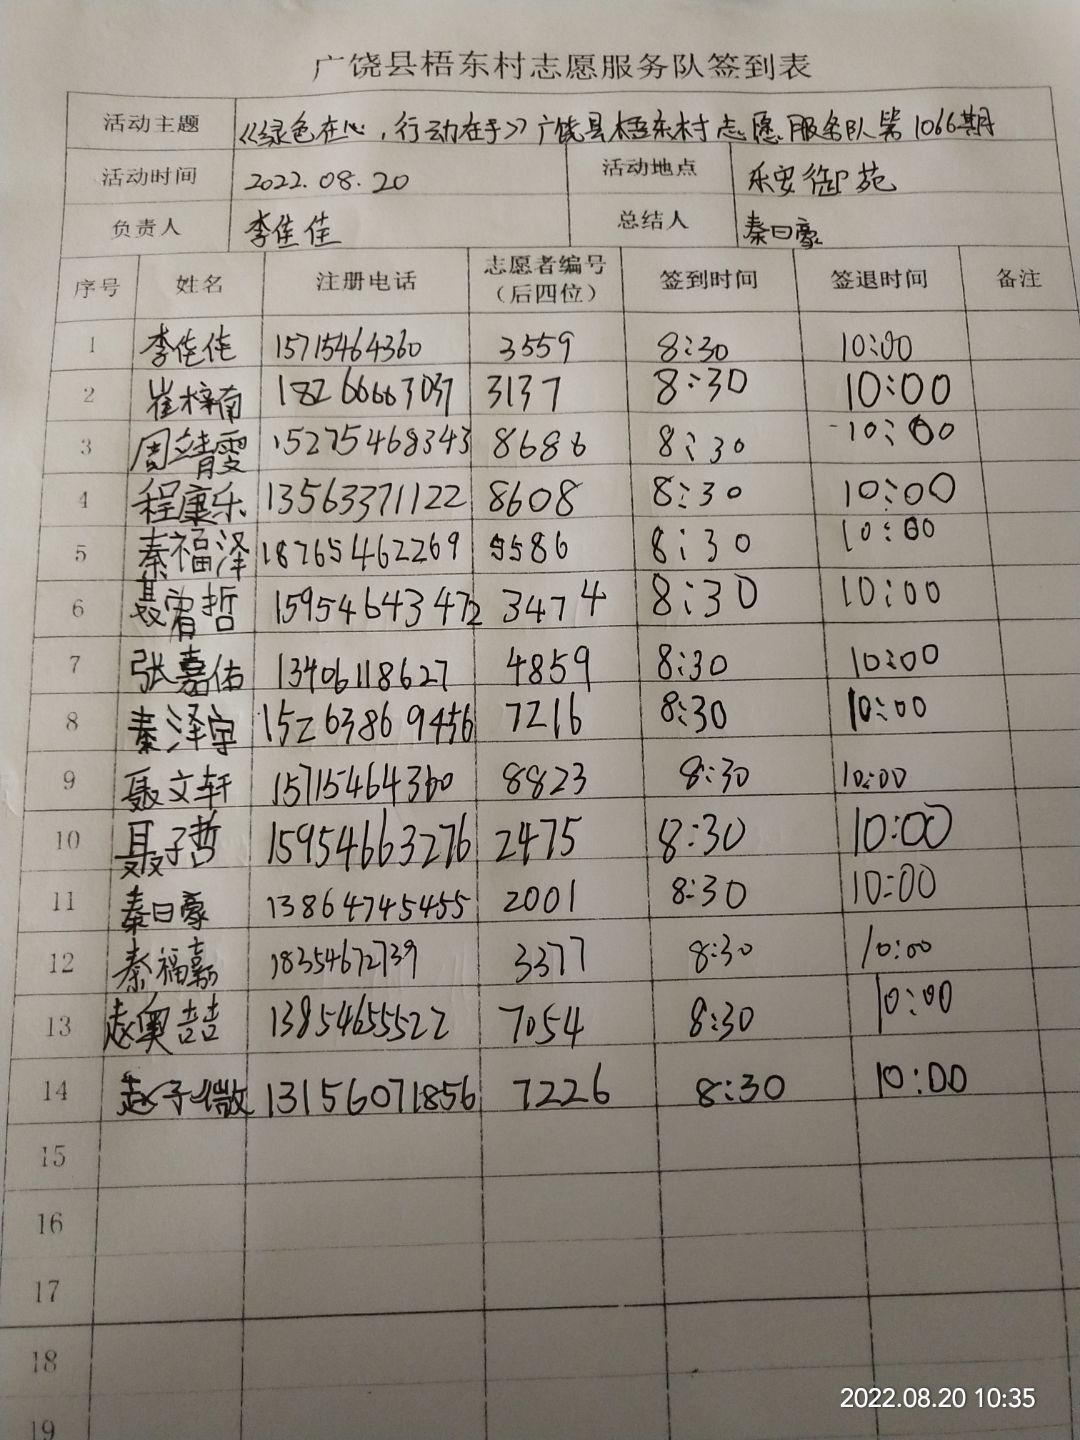 广饶县梧东村志愿服务队签到表
活动主题 《绿色在心，行动在手》广饶县梧东村志愿服务队第1066期
活动时间 2022.08.20 活动地点 乐安御苑
负责人 李佳佳 总结人 秦曰豪
序号 姓名 注册电话 志愿者编号（后四位） 签到时间 签退时间 备注
1 李佳佳 15715464360 3559 8:30 10:00
2 崔梓南 18266663037 3137 8:30 10:00
3 周靖雯 15275468343 8686 8:30 10:00
4 程康乐 13563371122 8608 8:30 10:00
5 秦福泽 18765462269 5586 8:30 10:00
6 聂宥哲 15954643472 3474 8:30 10:00
7 张嘉佑 13406118627 4859 8:30 10:00
8 秦泽宇 15263869456 7216 8:30 10:00
9 聂文轩 15715464360 8823 8:30 10:00
10 聂子哲 15954663276 2475 8:30 10:00
11 秦曰豪 13864745455 2001 8:30 10:00
12 秦福嘉 18354672739 3377 8:30 10:00
13 赵奥喆 13854655522 7054 8:30 10:00
14 赵子微 13156071856 7226 8:30 10:00
15
16
17
18
19
2022.08.20 10:35